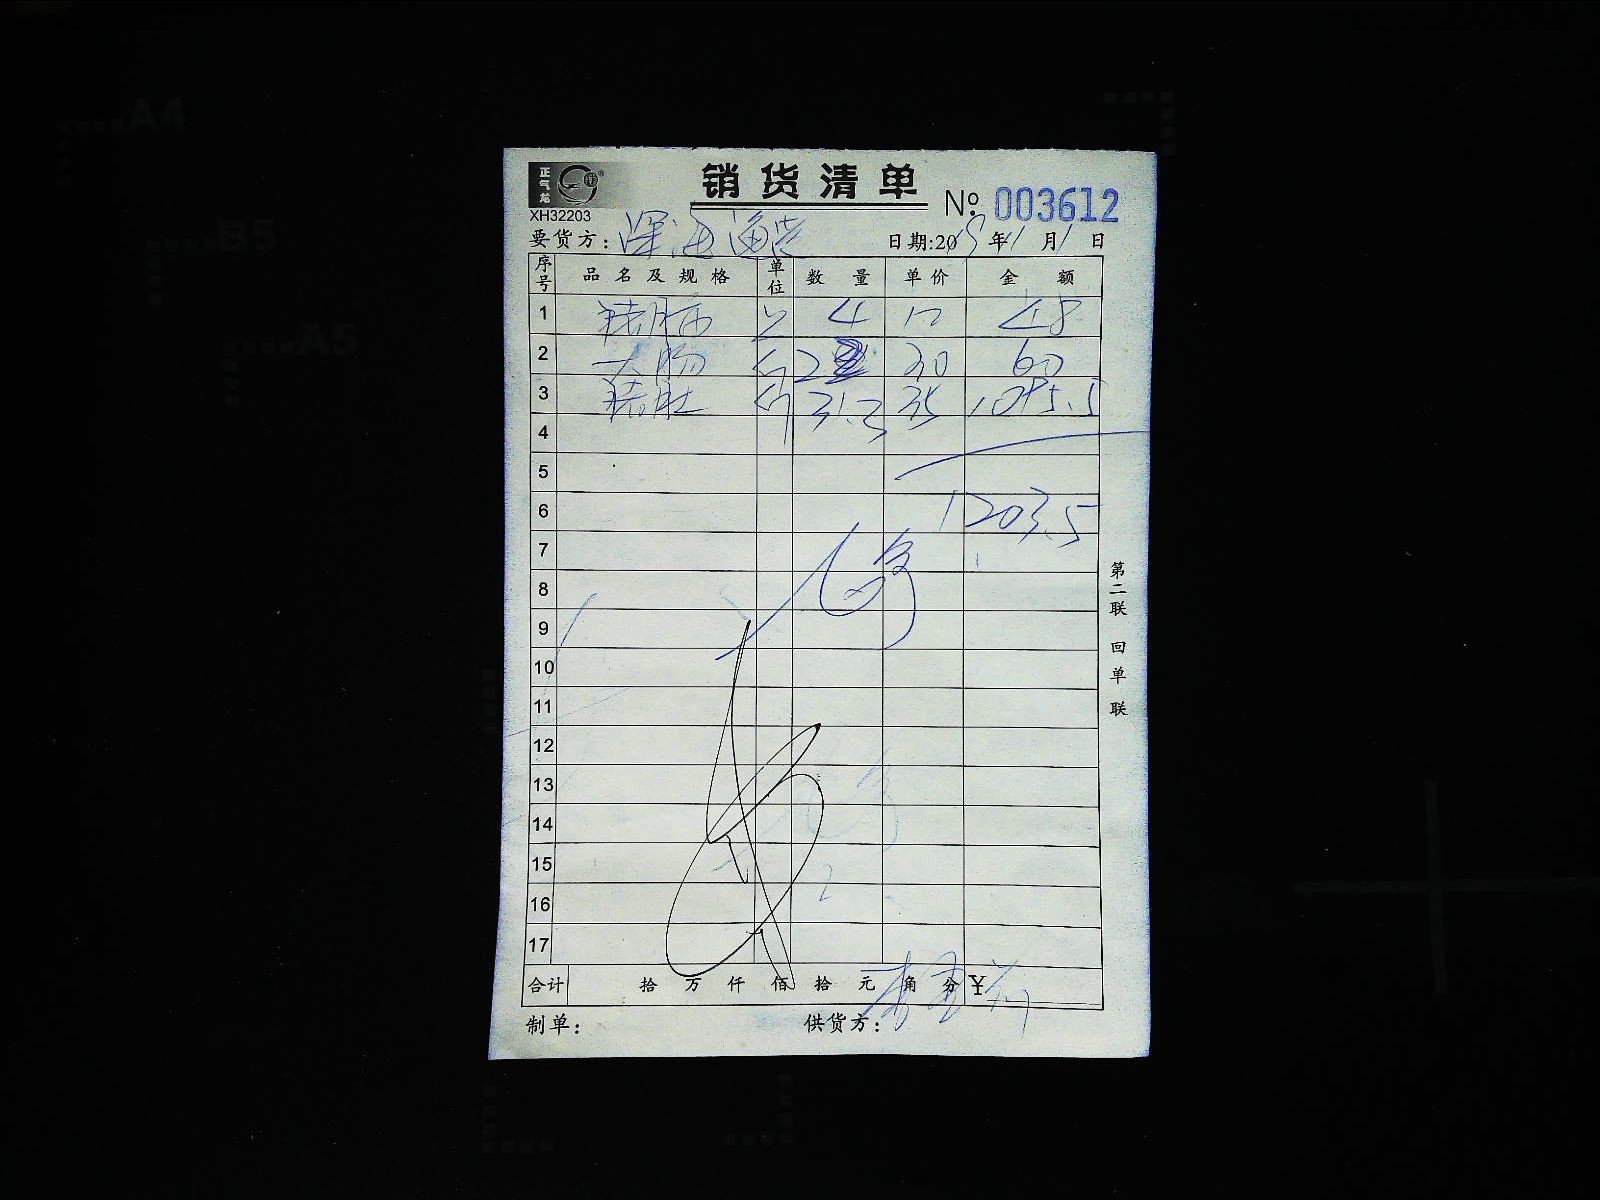 正气龙
销货清单
XH32203
№ 003612
要货方: 深海渔
日期:2019年11月1日
序号 品名及规格 单位 数量 单价 金额
1 4 12 48
2 大肠 斤 2 30 60
3 猪肚 斤 31.3 35 1095.5
4
5
6 1203.5
7
8
9
10
11
12
13
14
15
16
17
合计 拾 万 仟 佰 拾 元 角 分 ¥
制单: 供货方: 李
第二联 回单联
A4
B5
A5